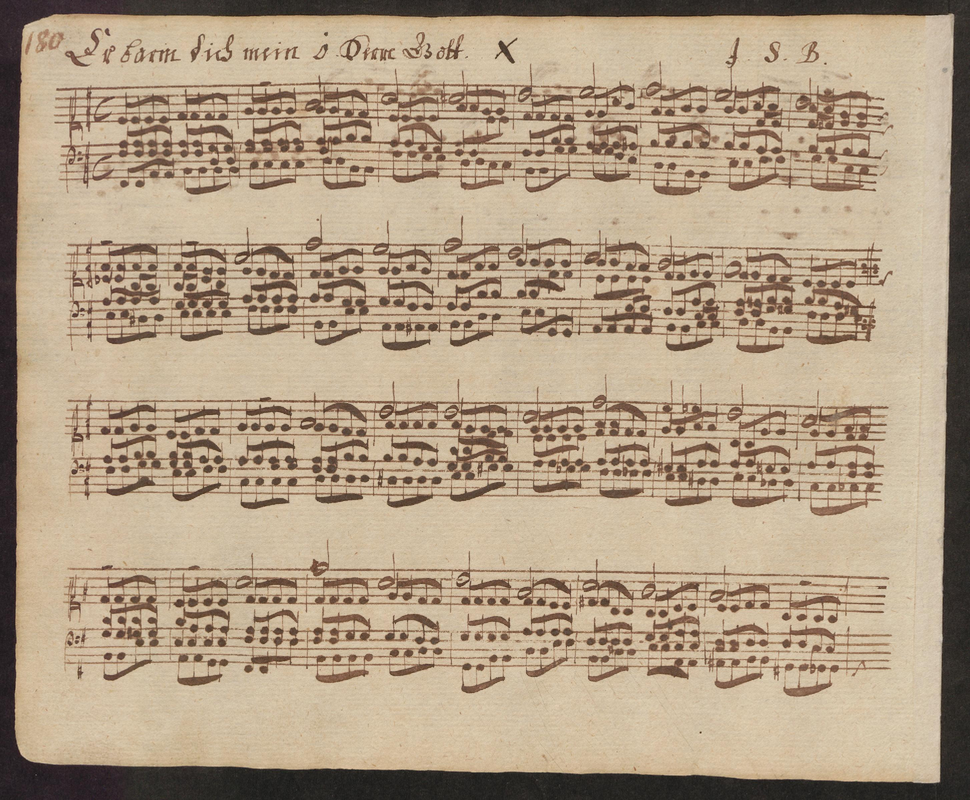 180 Erbarm dich mein ô Herre Gott. X J. S. B.